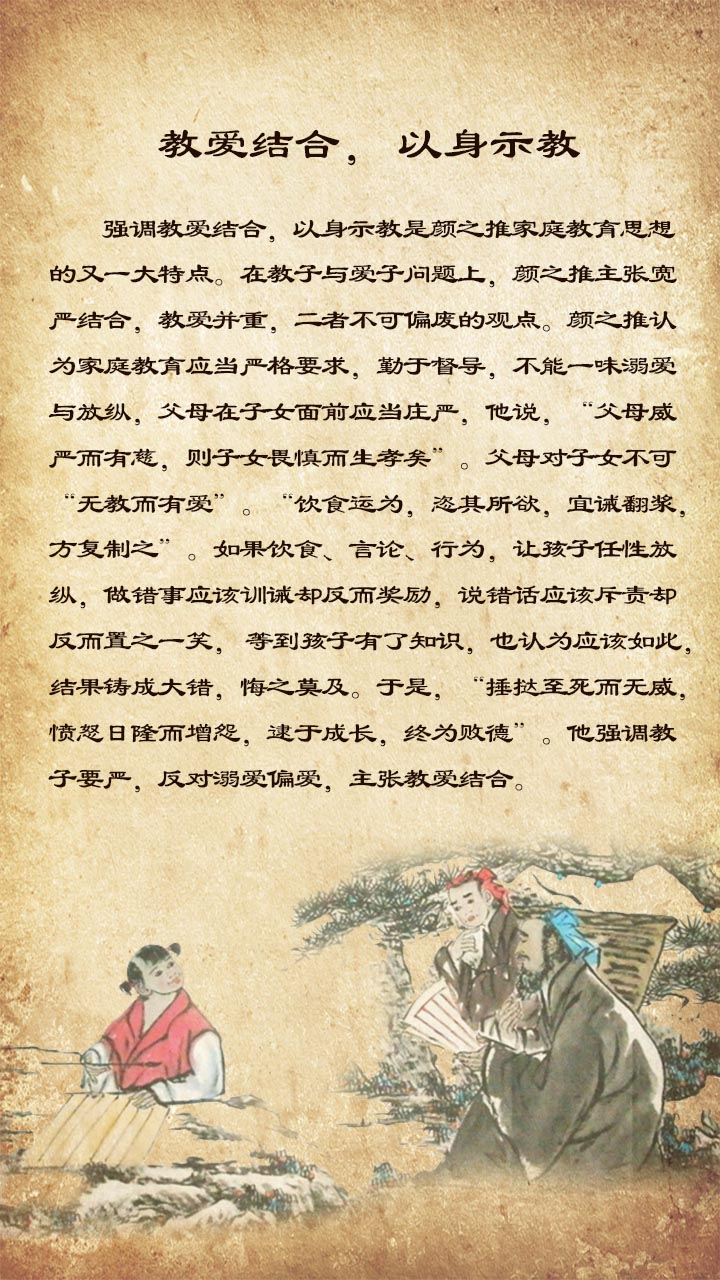 教爱结合，以身示教
强调教爱结合，以身示教是颜之推家庭教育思想
的又一大特点。在教子与爱子问题上，颜之推主张宽
严结合，教爱并重，二者不可偏废的观点。颜之推认
为家庭教育应当严格要求，勤于督导，不能一味溺爱
与放纵，父母在子女面前应当庄严，他说，“父母威
严而有慈，则子女畏慎而生孝矣”。父母对子女不可
“无教而有爱”。“饮食运为，恣其所欲，宜诫翻奖，
方复制之”。如果饮食、言论、行为，让孩子任性放
纵，做错事应该训诫却反而奖励，说错话应该斥责却
反而置之一笑，等到孩子有了知识，也认为应该如此，
结果铸成大错，悔之莫及。于是，“捶挞至死而无威，
愤怒日隆而增怨，逮于成长，终为败德”。他强调教
子要严，反对溺爱偏爱，主张教爱结合。